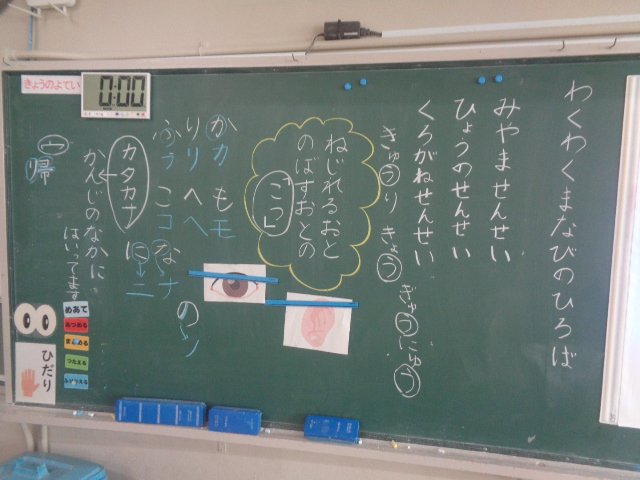 わくわくまなびのひろば
みやませんせい
ひょうのせんせい
くろがねせんせい
きゅうり きょう
ぎゅうにゅう
ねじれるおと
のばすおとの
「こつ」
かカ もモ
りリ へヘ
ふフ こコ なナ
のノ
にニ
カタカナ
かんじのなかに
はいってます
帰
きょうのよてい
0:00
めあて
つたえる
ひだり